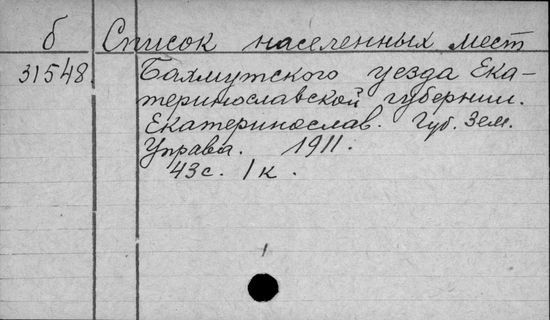 б Список населенных мест
31548 Бахмутского уезда Ека-
теринославской губернии.
Екатеринослав. Губ. Зем.
Управа. 1911.
43с. 1к.